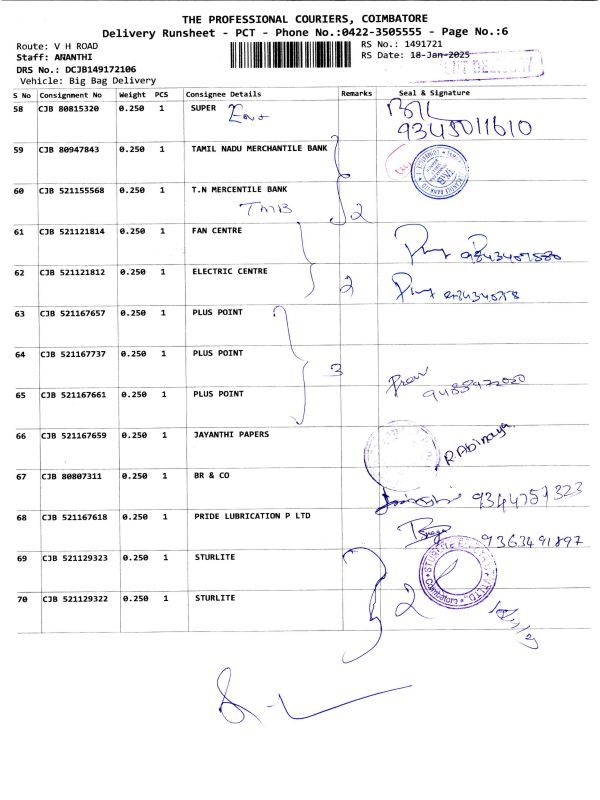 THE PROFESSIONAL COURIERS, COIMBATORE
Delivery Runsheet - PCT - Phone No.:0422-3505555 - Page No.:6
Route: V H ROAD RS No.: 1491721
Staff: ANANTHI RS Date: 18-Jan-2025
DRS No.: DCJB149172106
Vehicle: Big Bag Delivery
S No Consignment No Weight PCS Consignee Details Remarks Seal & Signature
58 CJB 80815320 0.250 1 SUPER
9345011610
59 CJB 80947843 0.250 1 TAMIL NADU MERCHANTILE BANK
60 CJB 521155568 0.250 1 T.N MERCENTILE BANK
TMB 2
61 CJB 521121814 0.250 1 FAN CENTRE
62 CJB 521121812 0.250 1 ELECTRIC CENTRE 2
63 CJB 521167657 0.250 1 PLUS POINT
64 CJB 521167737 0.250 1 PLUS POINT 3
65 CJB 521167661 0.250 1 PLUS POINT
66 CJB 521167659 0.250 1 JAYANTHI PAPERS R. Abinaya
67 CJB 80807311 0.250 1 BR & CO 9344757323
68 CJB 521167618 0.250 1 PRIDE LUBRICATION P LTD 9363491897
69 CJB 521129323 0.250 1 STURLITE
70 CJB 521129322 0.250 1 STURLITE 2 Coimbatore